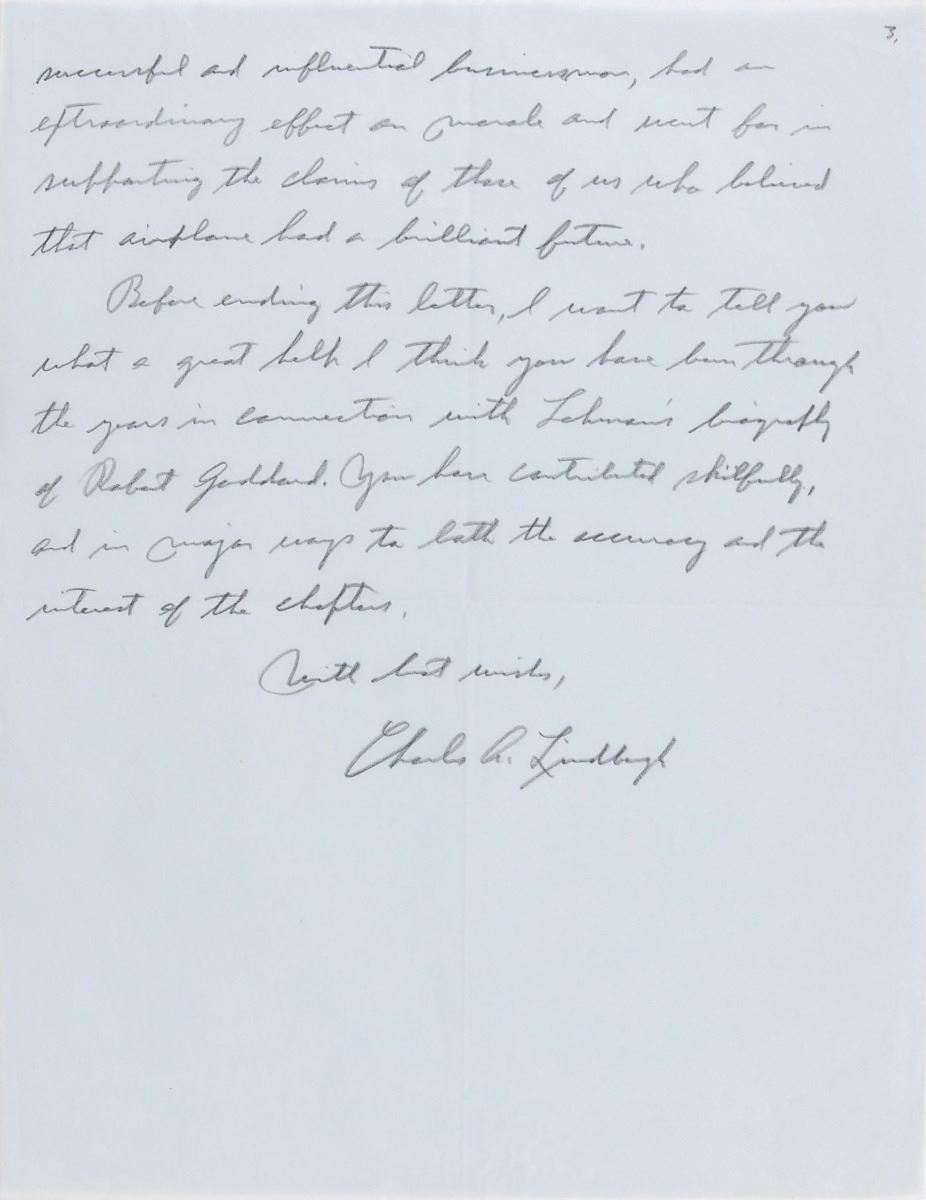 3.
successful and influential businessman, had an
extraordinary effect on morale and went far in
supporting the claims of those of us who believed
that airplane had a brilliant future.
Before ending this letter, I want to tell you
what a great help I think you have been through
the years in connection with Lehman's biography
of Robert Goddard. You have contributed skilfully,
and in major ways to both the accuracy and the
interest of the chapters.
With best wishes,
Charles A. Lindbergh